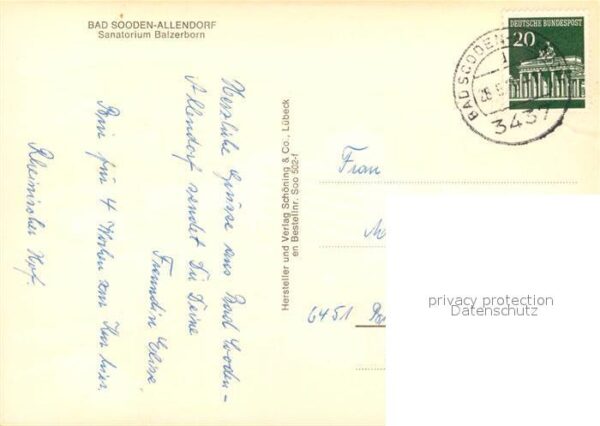 BAD SOODEN-ALLENDORF
Sanatorium Balzerborn
Herzliche Grüsse aus Bad Sooden-
Allendorf sendet Dir Deine
Freundin
Bin für 4 Wochen zur Kur hier,
Rheinischer Hof.
Hersteller und Verlag Schöning & Co., Lübeck
en Bestellnr. Soo 502-f
DEUTSCHE BUNDESPOST
20
BAD SOODEN-
3437
Frau
6451
privacy protection
Datenschutz